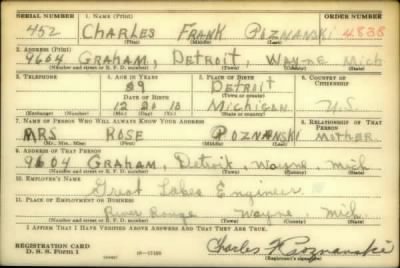 SERIAL NUMBER 1. NAME (Print) ORDER NUMBER
452 CHARLES FRANK POZNANSKI 4838
(First) (Middle) (Last)
2. ADDRESS (Print)
9604 GRAHAM, DETROIT, WAYNE Mich
(Number and street or R. F. D. number) (Town) (County) (State)
3. TELEPHONE 4. AGE IN YEARS 5. PLACE OF BIRTH 6. COUNTRY OF CITIZENSHIP
Detroit
DATE OF BIRTH
12 20 10 Michigan U.S.
(Exchange) (Number) (Mo.) (Day) (Yr.) (State or country)
7. NAME OF PERSON WHO WILL ALWAYS KNOW YOUR ADDRESS 8. RELATIONSHIP OF THAT PERSON
MRS ROSE POZNANSKI MOTHER
(Mr., Mrs., Miss) (First) (Middle) (Last)
9. ADDRESS OF THAT PERSON
9604 GRAHAM, Detroit, Wayne, Mich
(Number and street or R. F. D. number) (Town) (County) (State)
10. EMPLOYER'S NAME
Great Lakes Engineer
11. PLACE OF EMPLOYMENT OR BUSINESS
River Rouge Wayne Mich.
(Number and street or R. F. D. number) (Town) (County) (State)
I AFFIRM THAT I HAVE VERIFIED ABOVE ANSWERS AND THAT THEY ARE TRUE.
REGISTRATION CARD
D. S. S. Form 1
Charles F Poznanski
(Registrant's signature)